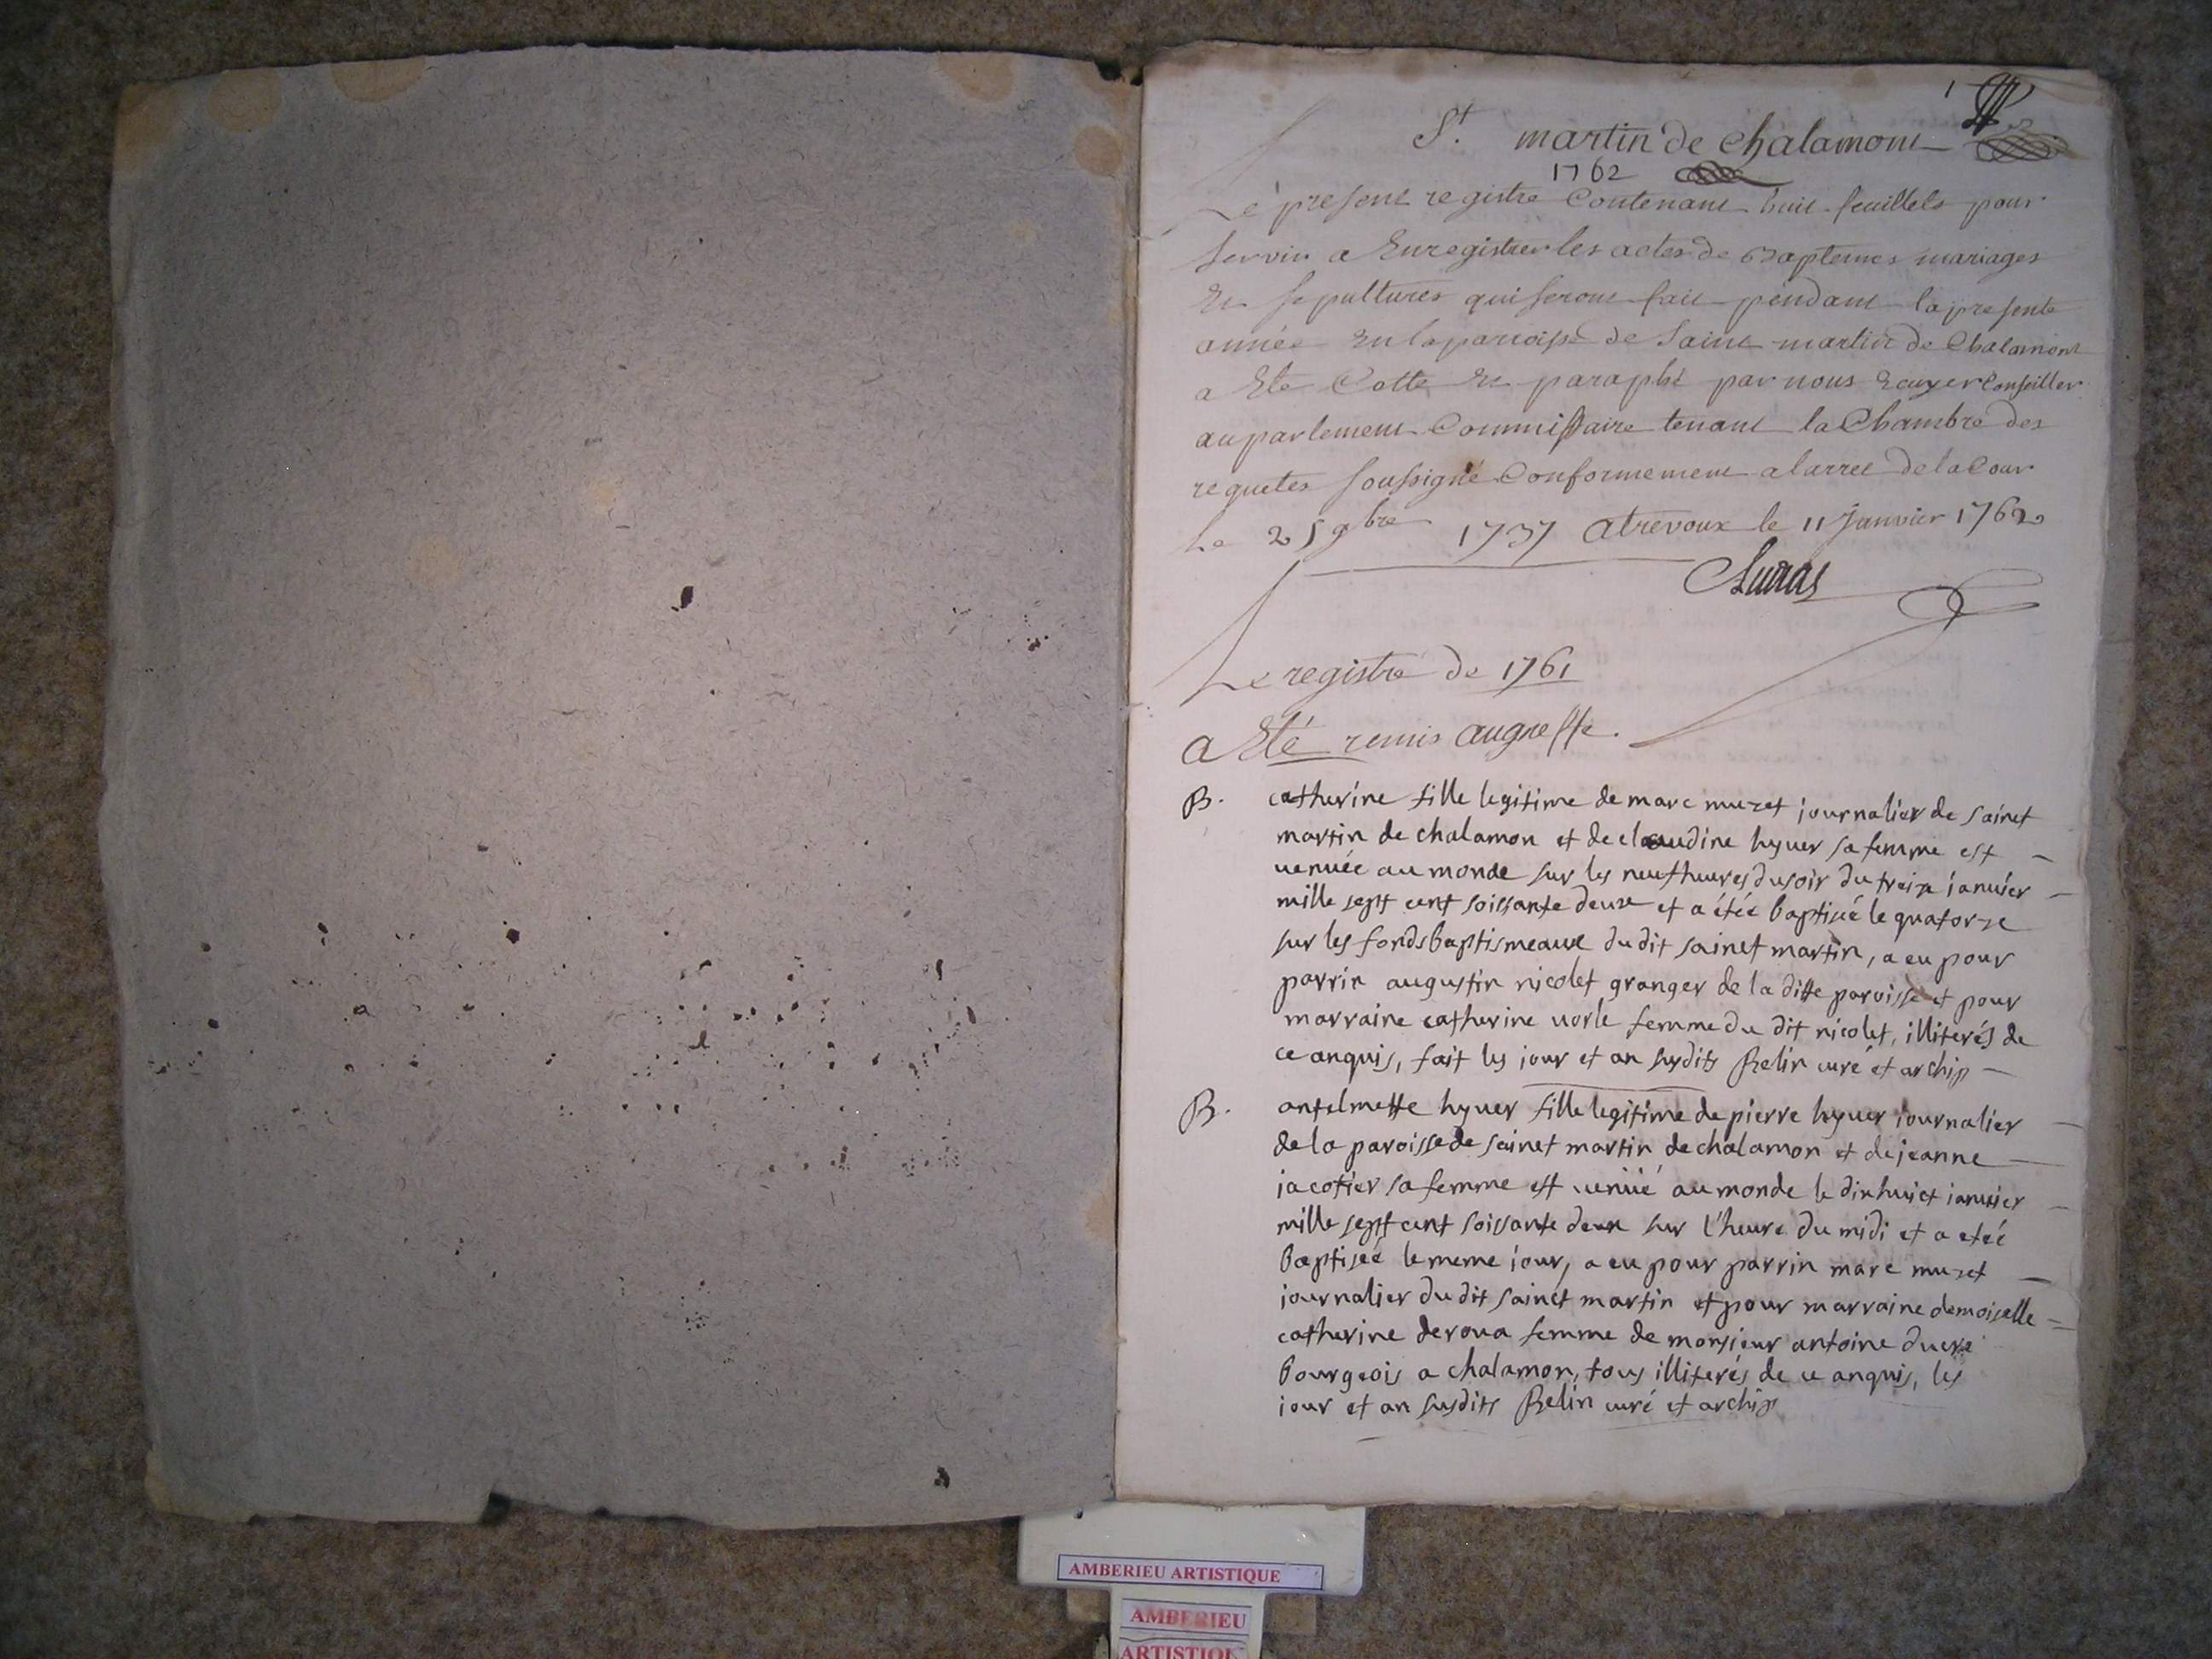 1
St. martin de chalamont
1762
Le present registre Contenant huit feuillets pour
servir a Enregistrer les actes de Baptemes mariages
Et sepultures qui seront fait pendant la presente
année En la paroisse de Saint martin de Chalamont
a Eté Cotté Et paraphé par nous Ecuyer Conseiller
au parlement Commissaire tenant la Chambre des
requetes soussigné Conformement a larret de la Cour
Le 25 9bre 1737 a trevoux le 11 Janvier 1762
Le registre de 1761
a Eté remis au greffe.
B. catherine fille legitime de marc muzet journalier de sainct
martin de chalamon et de claudine hyuer sa femme est
venuée au monde sur les neuf heures du soir du treize ianuier
mille sept cent soissante deux et a étée baptisée le quatorze
sur les fonds baptismeaux du dit sainct martin, a eu pour
parrin augustin nicolet granger de la ditte paroisse et pour
marraine catherine vorle femme du dit nicolet, illiterés de
ce anquis, fait les jour et an susdits Belin curé et archip
B. antelmette hyuer fille legitime de pierre hyuer iournalier
de la paroisse de sainct martin de chalamon et de jeanne
iacotier sa femme est venüé au monde le dixhuict ianuier
mille sept cent soissante deux sur l'heure du midi et a etéé
baptiseé le meme iour, a eu pour parrin marc muzet
journalier du dit sainct martin et pour marraine demoiselle
catherine deroua femme de monsieur antoine ducre
bourgeois a chalamon, tous illiterés de ce anquis, les
iour et an susdits Belin curé et archip
AMBERIEU ARTISTIQUE
AMBERIEU
ARTISTIQUE